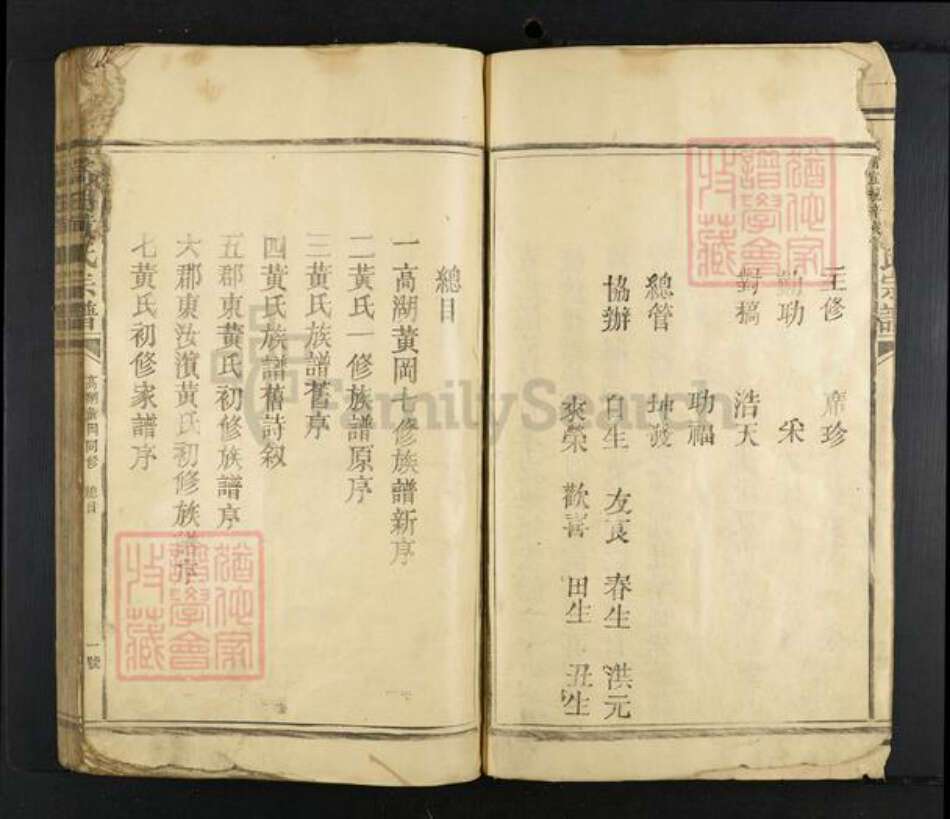 主修 席珍
勷功 采
對稿 浩天
助福
總管 坤發
協辦 自生 友良 春生 洪元
來榮 歡喜 田生 丑生
總目
一高湖黃岡七修族譜新序
二黃氏一修族譜原序
三黃氏族譜舊序
四黃氏族譜舊詩敘
五郡東黃氏初修族譜序
六郡東汝濱黃氏初修族譜序
七黃氏初修家譜序
高湖黃岡同修 總目 一號
氏宗譜
猶他家譜學會收藏
猶他家譜學會收藏
FamilySearch